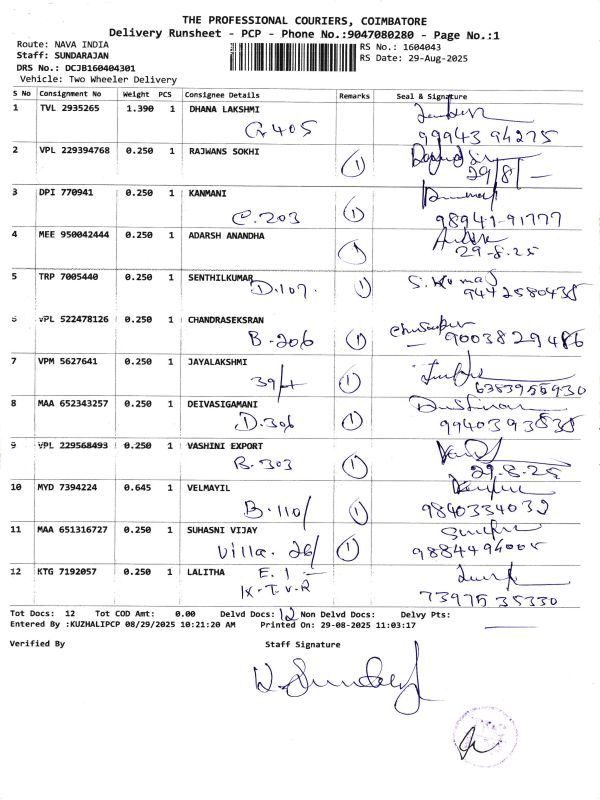 THE PROFESSIONAL COURIERS, COIMBATORE
Delivery Runsheet - PCP - Phone No.:9047080280 - Page No.:1
Route: NAVA INDIA
RS No.: 1604043
Staff: SUNDARAJAN
RS Date: 29-Aug-2025
DRS No.: DCJB160404301
Vehicle: Two Wheeler Delivery
S No Consignment No Weight PCS Consignee Details Remarks Seal & Signature
1 TVL 2935265 1.390 1 DHANA LAKSHMI
G 405 99943 94275
2 VPL 229394768 0.250 1 RAJWANS SOKHI
1 29/8/
3 DPI 770941 0.250 1 KANMANI
C.203 1 98941-91777
4 MEE 950042444 0.250 1 ADARSH ANANDHA
1 29-8.25
5 TRP 7005440 0.250 1 SENTHILKUMAR
D.107. 1 S. Kumar 9442580435
6 VPL 522478126 0.250 1 CHANDRASEKSRAN
B-206 1 9003829486
7 VPM 5627641 0.250 1 JAYALAKSHMI
1 6383955930
8 MAA 652343257 0.250 1 DEIVASIGAMANI
D.306 1 9940393535
9 VPL 229568493 0.250 1 VASHINI EXPORT
B.303 1 29.8.25
10 MYD 7394224 0.645 1 VELMAYIL
B.110/ 1 9840334032
11 MAA 651316727 0.250 1 SUHASNI VIJAY
Villa. 26/ 1 9884494005
12 KTG 7192057 0.250 1 LALITHA E.1
IX-T.V.R 73975 35330
Tot Docs: 12 Tot COD Amt: 0.00 Delvd Docs: 12 Non Delvd Docs: Delvy Pts:
Entered By :KUZHALIPCP 08/29/2025 10:21:20 AM Printed On: 29-08-2025 11:03:17
Verified By Staff Signature